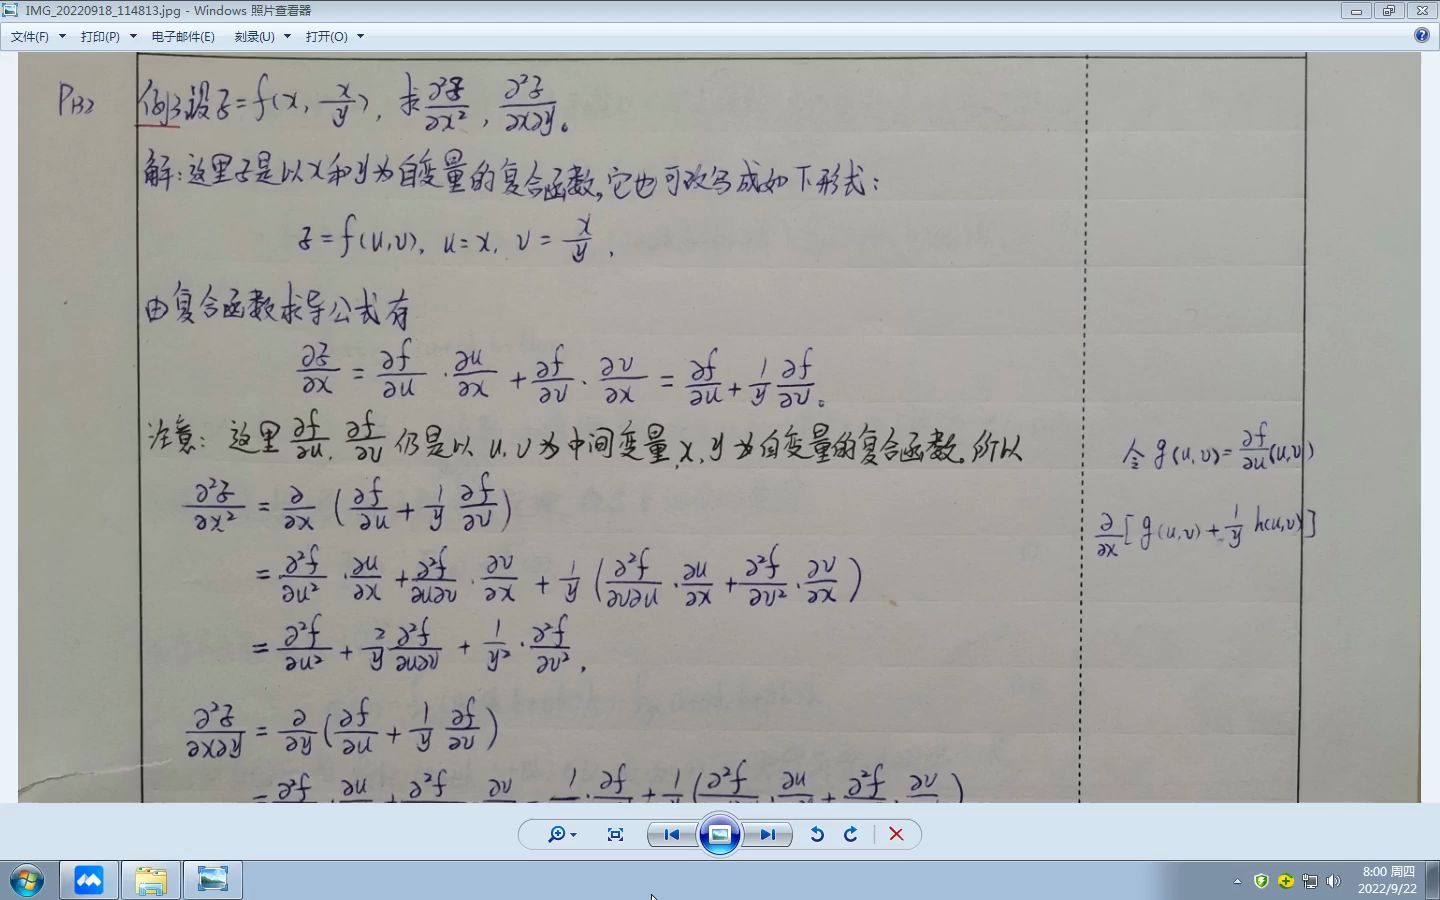 IMG_20220918_114813.jpg - Windows 照片查看器
文件(F) 打印(P) 电子邮件(E) 刻录(U) 打开(O)
P132 例3 设z=f(x, x/y), 求∂²z/∂x², ∂²z/∂x∂y。
解:这里z是以x和y为自变量的复合函数,它也可改写成如下形式:
z=f(u,v), u=x, v=x/y,
由复合函数求导公式有
∂z/∂x = ∂f/∂u · ∂u/∂x + ∂f/∂v · ∂v/∂x = ∂f/∂u + 1/y ∂f/∂v。
注意: 这里∂f/∂u, ∂f/∂v仍是以u,v为中间变量,x,y为自变量的复合函数。所以
令g(u,v)=∂f/∂u(u,v)
∂²z/∂x² = ∂/∂x (∂f/∂u + 1/y ∂f/∂v)
∂/∂x[g(u,v)+1/y h(u,v)]
= ∂²f/∂u² · ∂u/∂x + ∂²f/∂u∂v · ∂v/∂x + 1/y (∂²f/∂v∂u · ∂u/∂x + ∂²f/∂v² · ∂v/∂x)
= ∂²f/∂u² + 2/y ∂²f/∂u∂v + 1/y² · ∂²f/∂v²,
∂²z/∂x∂y = ∂/∂y (∂f/∂u + 1/y ∂f/∂v)
8:00 周四
2022/9/22